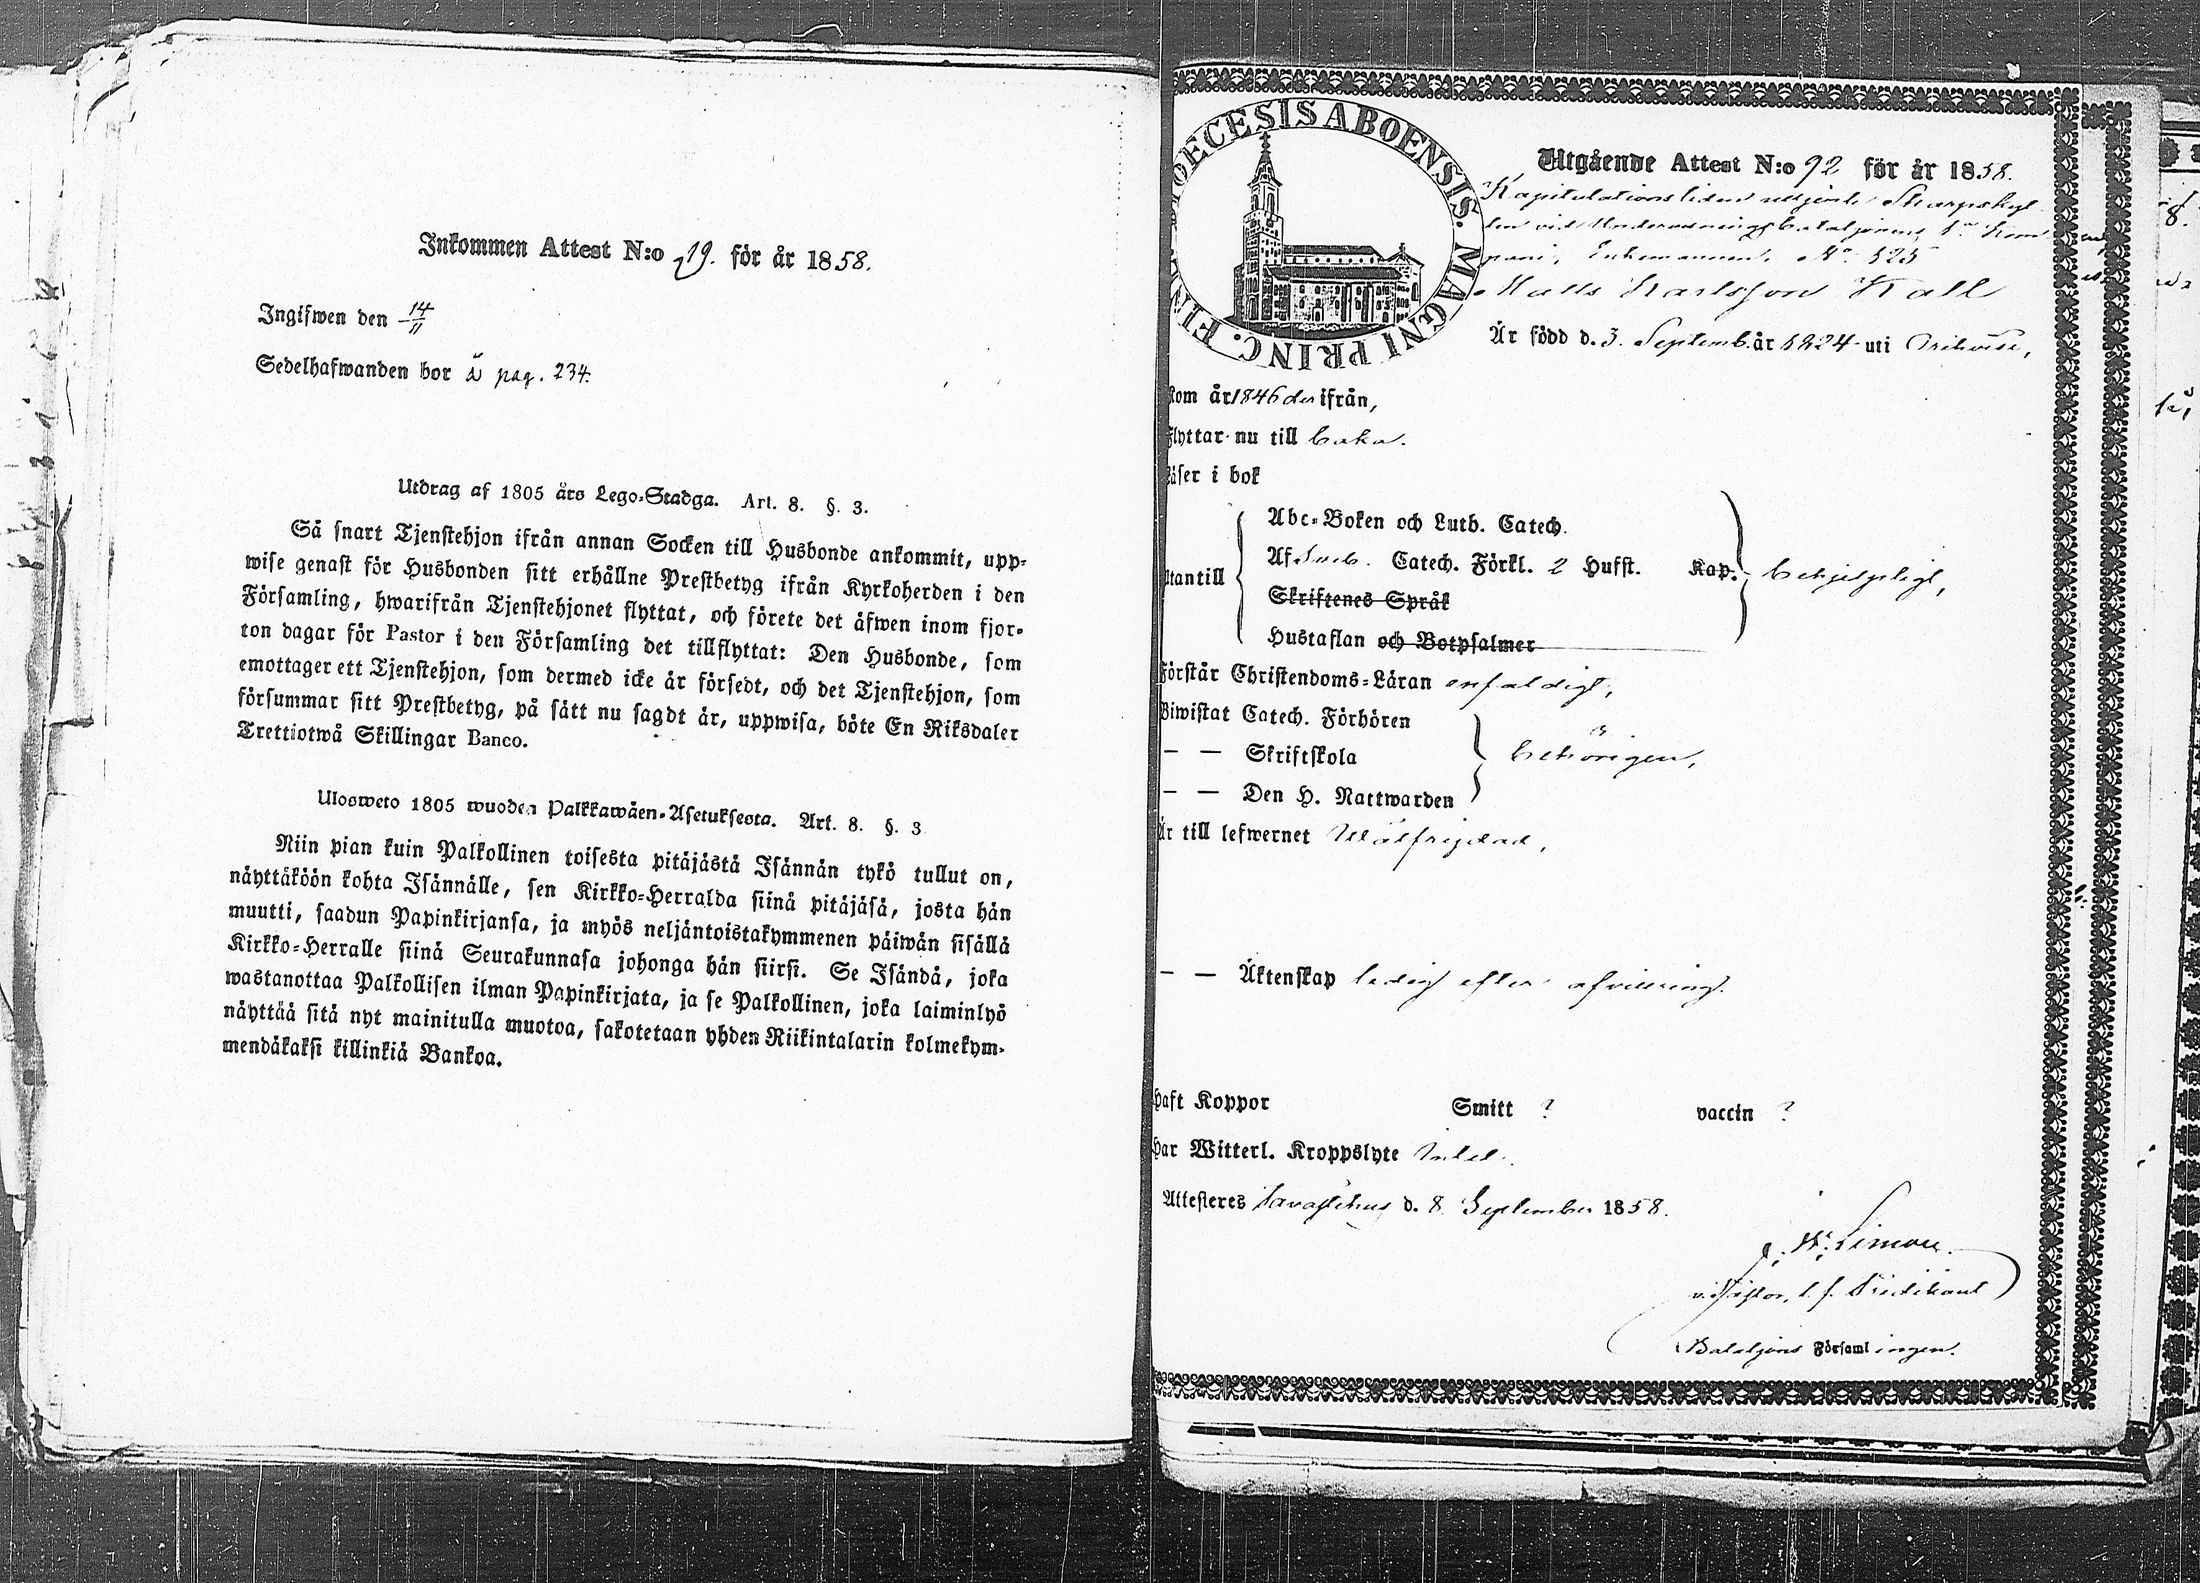 Inkommen Attest N:o 19. för år 1858.
Ingifwen den 14/11
Sedelhafwanden bor å pag. 234.
Utdrag af 1805 års Lego-Stadga. Art. 8. §. 3.
Så snart Tjenstehjon ifrån annan Socken till Husbonde ankommit, upp-
wise genast för Husbonden sitt erhållne Prestbetyg ifrån Kyrkoherden i den
Församling, hwarifrån Tjenstehjonet flyttat, och förete det äfwen inom fjor-
ton dagar för Pastor i den Församling det tillflyttat: Den Husbonde, som
emottager ett Tjenstehjon, som dermed icke är försedt, och det Tjenstehjon, som
försummar sitt Prestbetyg, på sätt nu sagdt är, uppwisa, böte En Riksdaler
Trettiotwå Skillingar Banco.
Ulosweto 1805 wuoden Palkkawäen-Asetuksesta. Art. 8. §. 3
Niin pian kuin Palkollinen toisesta pitäjästä Isännän tykö tullut on,
näyttäköön kohta Isännälle, sen Kirkko-Herralda siinä pitäjäsä, josta hän
muutti, saadun Papinkirjansa, ja myös neljäntoistakymmenen päiwän sisällä
Kirkko-Herralle siinä Seurakunnasa johonga hän siirsi. Se Isändä, joka
wastanottaa Palkollisen ilman Papinkirjata, ja se Palkollinen, joka laiminlyö
näyttää sitä nyt mainitulla muotoa, sakotetaan yhden Riikintalarin kolmekym-
mendäkaksi killinkiä Bankoa.
DIOECESIS ABOENSIS. MAGNI PRINC. FIN
Utgående Attest N:o 92 för år 1858.
Kapitulationstiden uttjente Skarpskyt
ten vid Undervisningsbataljonens 1a Kom
pani, Enkemannen, No 525
Matts Karlsson Kall
Är född d. 3. Septemb. år 1824 uti
kom år 1846 der ifrån,
flyttar nu till
Läser i bok
Utantill
Abc-Boken och Luth. Catech.
Af Sveb. Catech. Förkl. 2 Hufst. Kap. behjelpligt,
Skriftenes Språk
Hustaflan och Botpsalmer
Förstår Christendoms-Läran enfaldigt,
Biwistat Catech. Förhören
— — Skriftskola behörigen,
— — Den H. Nattwarden
Är till lefwernet Wälfrejdad,
— — Äktenskap ledig efter
haft Koppor Smitt ? vaccin ?
Har Witterl. Kroppslyte Intet.
Attesteres Tavastehus d. 8. September 1858.
v. Pastor, t. f. Predikant
Bataljons Församlingen.